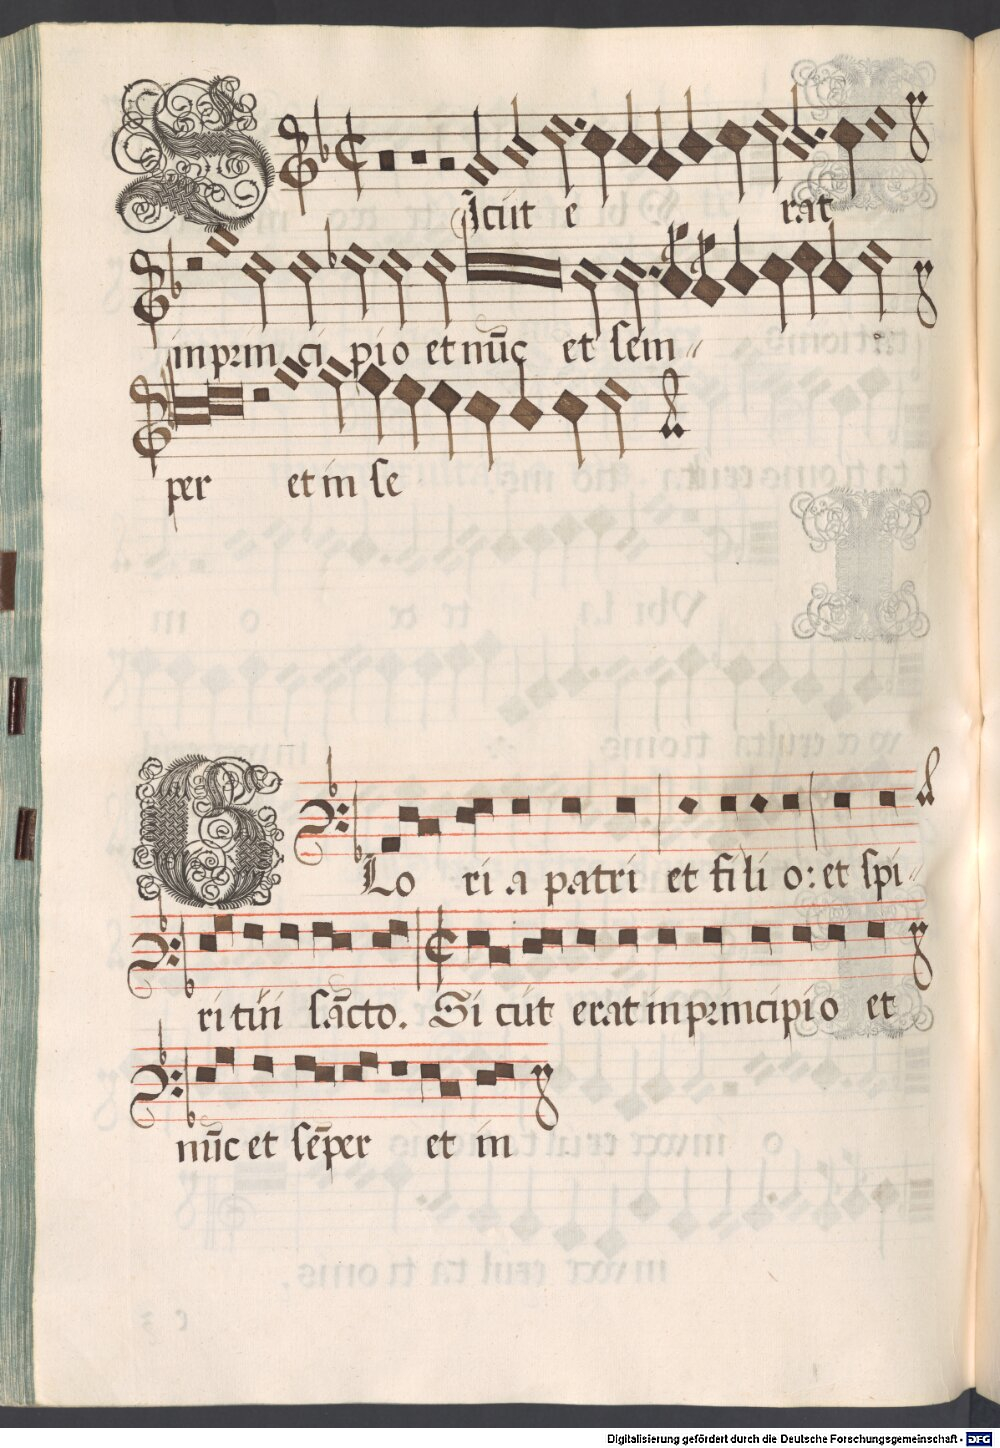 Sicut e rat
in prin ci pio et nūc et sem
per et in se
Glo ri a patri et fili o: et spi
ri tui sācto. Si cut erat in principio et
nūc et sēper et in
Digitalisierung gefördert durch die Deutsche Forschungsgemeinschaft - DFG